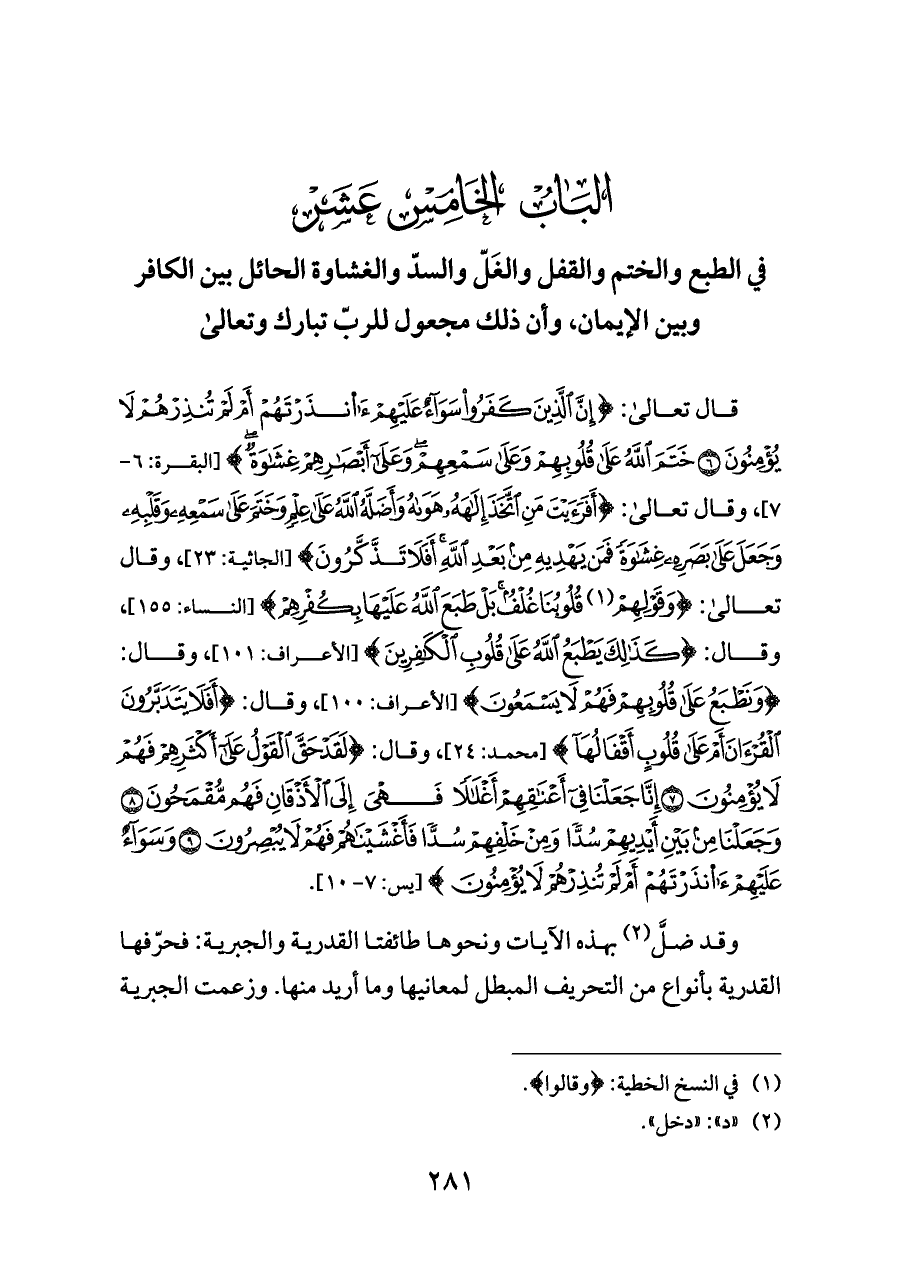 الباب الخامس عشر
في الطبع والختم والقفل والغَلّ والسدّ والغشاوة الحائل بين الكافر
وبين الإيمان، وأن ذلك مجعول للربّ تبارك وتعالىٰ
قال تعالىٰ: ﴿إِنَّ ٱلَّذِينَ كَفَرُوا۟ سَوَآءٌ عَلَيْهِمْ ءَأَنذَرْتَهُمْ أَمْ لَمْ تُنذِرْهُمْ لَا
يُؤْمِنُونَ ۝٦ خَتَمَ ٱللَّهُ عَلَىٰ قُلُوبِهِمْ وَعَلَىٰ سَمْعِهِمْ ۖ وَعَلَىٰٓ أَبْصَٰرِهِمْ غِشَٰوَةٌ ۖ﴾ [البقرة: ٦-
٧]، وقال تعالىٰ: ﴿أَفَرَءَيْتَ مَنِ ٱتَّخَذَ إِلَٰهَهُۥ هَوَىٰهُ وَأَضَلَّهُ ٱللَّهُ عَلَىٰ عِلْمٍ وَخَتَمَ عَلَىٰ سَمْعِهِۦ وَقَلْبِهِۦ
وَجَعَلَ عَلَىٰ بَصَرِهِۦ غِشَٰوَةً فَمَن يَهْدِيهِ مِنۢ بَعْدِ ٱللَّهِ ۚ أَفَلَا تَذَكَّرُونَ﴾ [الجاثية: ٢٣]، وقال
تعالىٰ: ﴿وَقَوْلِهِمْ(١) قُلُوبُنَا غُلْفٌۢ ۚ بَلْ طَبَعَ ٱللَّهُ عَلَيْهَا بِكُفْرِهِمْ﴾ [النساء: ١٥٥]،
وقال: ﴿كَذَٰلِكَ يَطْبَعُ ٱللَّهُ عَلَىٰ قُلُوبِ ٱلْكَٰفِرِينَ﴾ [الأعراف: ١٠١]، وقال:
﴿وَنَطْبَعُ عَلَىٰ قُلُوبِهِمْ فَهُمْ لَا يَسْمَعُونَ﴾ [الأعراف: ١٠٠]، وقال: ﴿أَفَلَا يَتَدَبَّرُونَ
ٱلْقُرْءَانَ أَمْ عَلَىٰ قُلُوبٍ أَقْفَالُهَآ﴾ [محمد: ٢٤]، وقال: ﴿لَقَدْ حَقَّ ٱلْقَوْلُ عَلَىٰٓ أَكْثَرِهِمْ فَهُمْ
لَا يُؤْمِنُونَ ۝٧ إِنَّا جَعَلْنَا فِىٓ أَعْنَٰقِهِمْ أَغْلَٰلًا فَهِىَ إِلَى ٱلْأَذْقَانِ فَهُم مُّقْمَحُونَ ۝٨
وَجَعَلْنَا مِنۢ بَيْنِ أَيْدِيهِمْ سُدًّا وَمِنْ خَلْفِهِمْ سُدًّا فَأَغْشَيْنَٰهُمْ فَهُمْ لَا يُبْصِرُونَ ۝٩ وَسَوَآءٌ
عَلَيْهِمْ ءَأَنذَرْتَهُمْ أَمْ لَمْ تُنذِرْهُمْ لَا يُؤْمِنُونَ﴾ [يس: ٧-١٠].
وقد ضلَّ(٢) بهذه الآيات ونحوها طائفتا القدرية والجبرية: فحرّفها
القدرية بأنواع من التحريف المبطل لمعانيها وما أريد منها. وزعمت الجبرية
(١) في النسخ الخطية: ﴿وقالوا﴾.
(٢) «د»: «دخل».
٢٨١